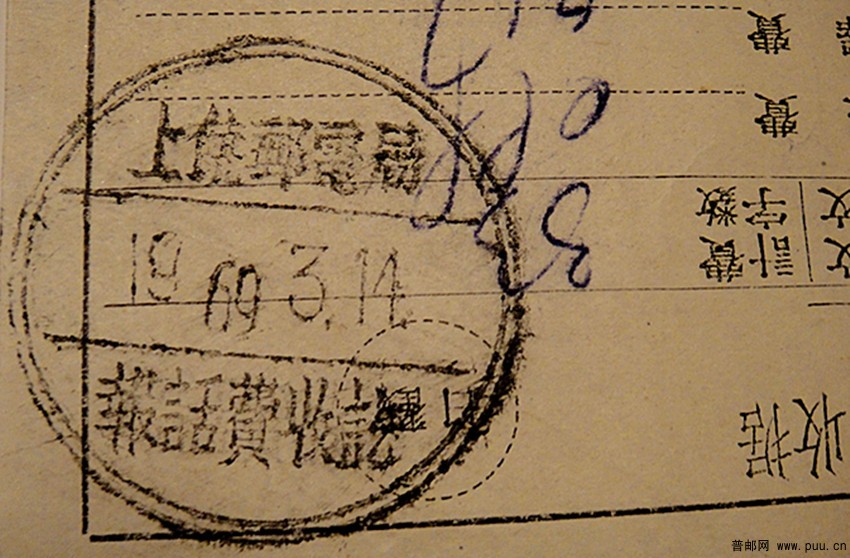 上海郵電局
1969 3.14
報話費收訖
日戳
收据
計費
字数
費
費
普邮网 www.puu.cn